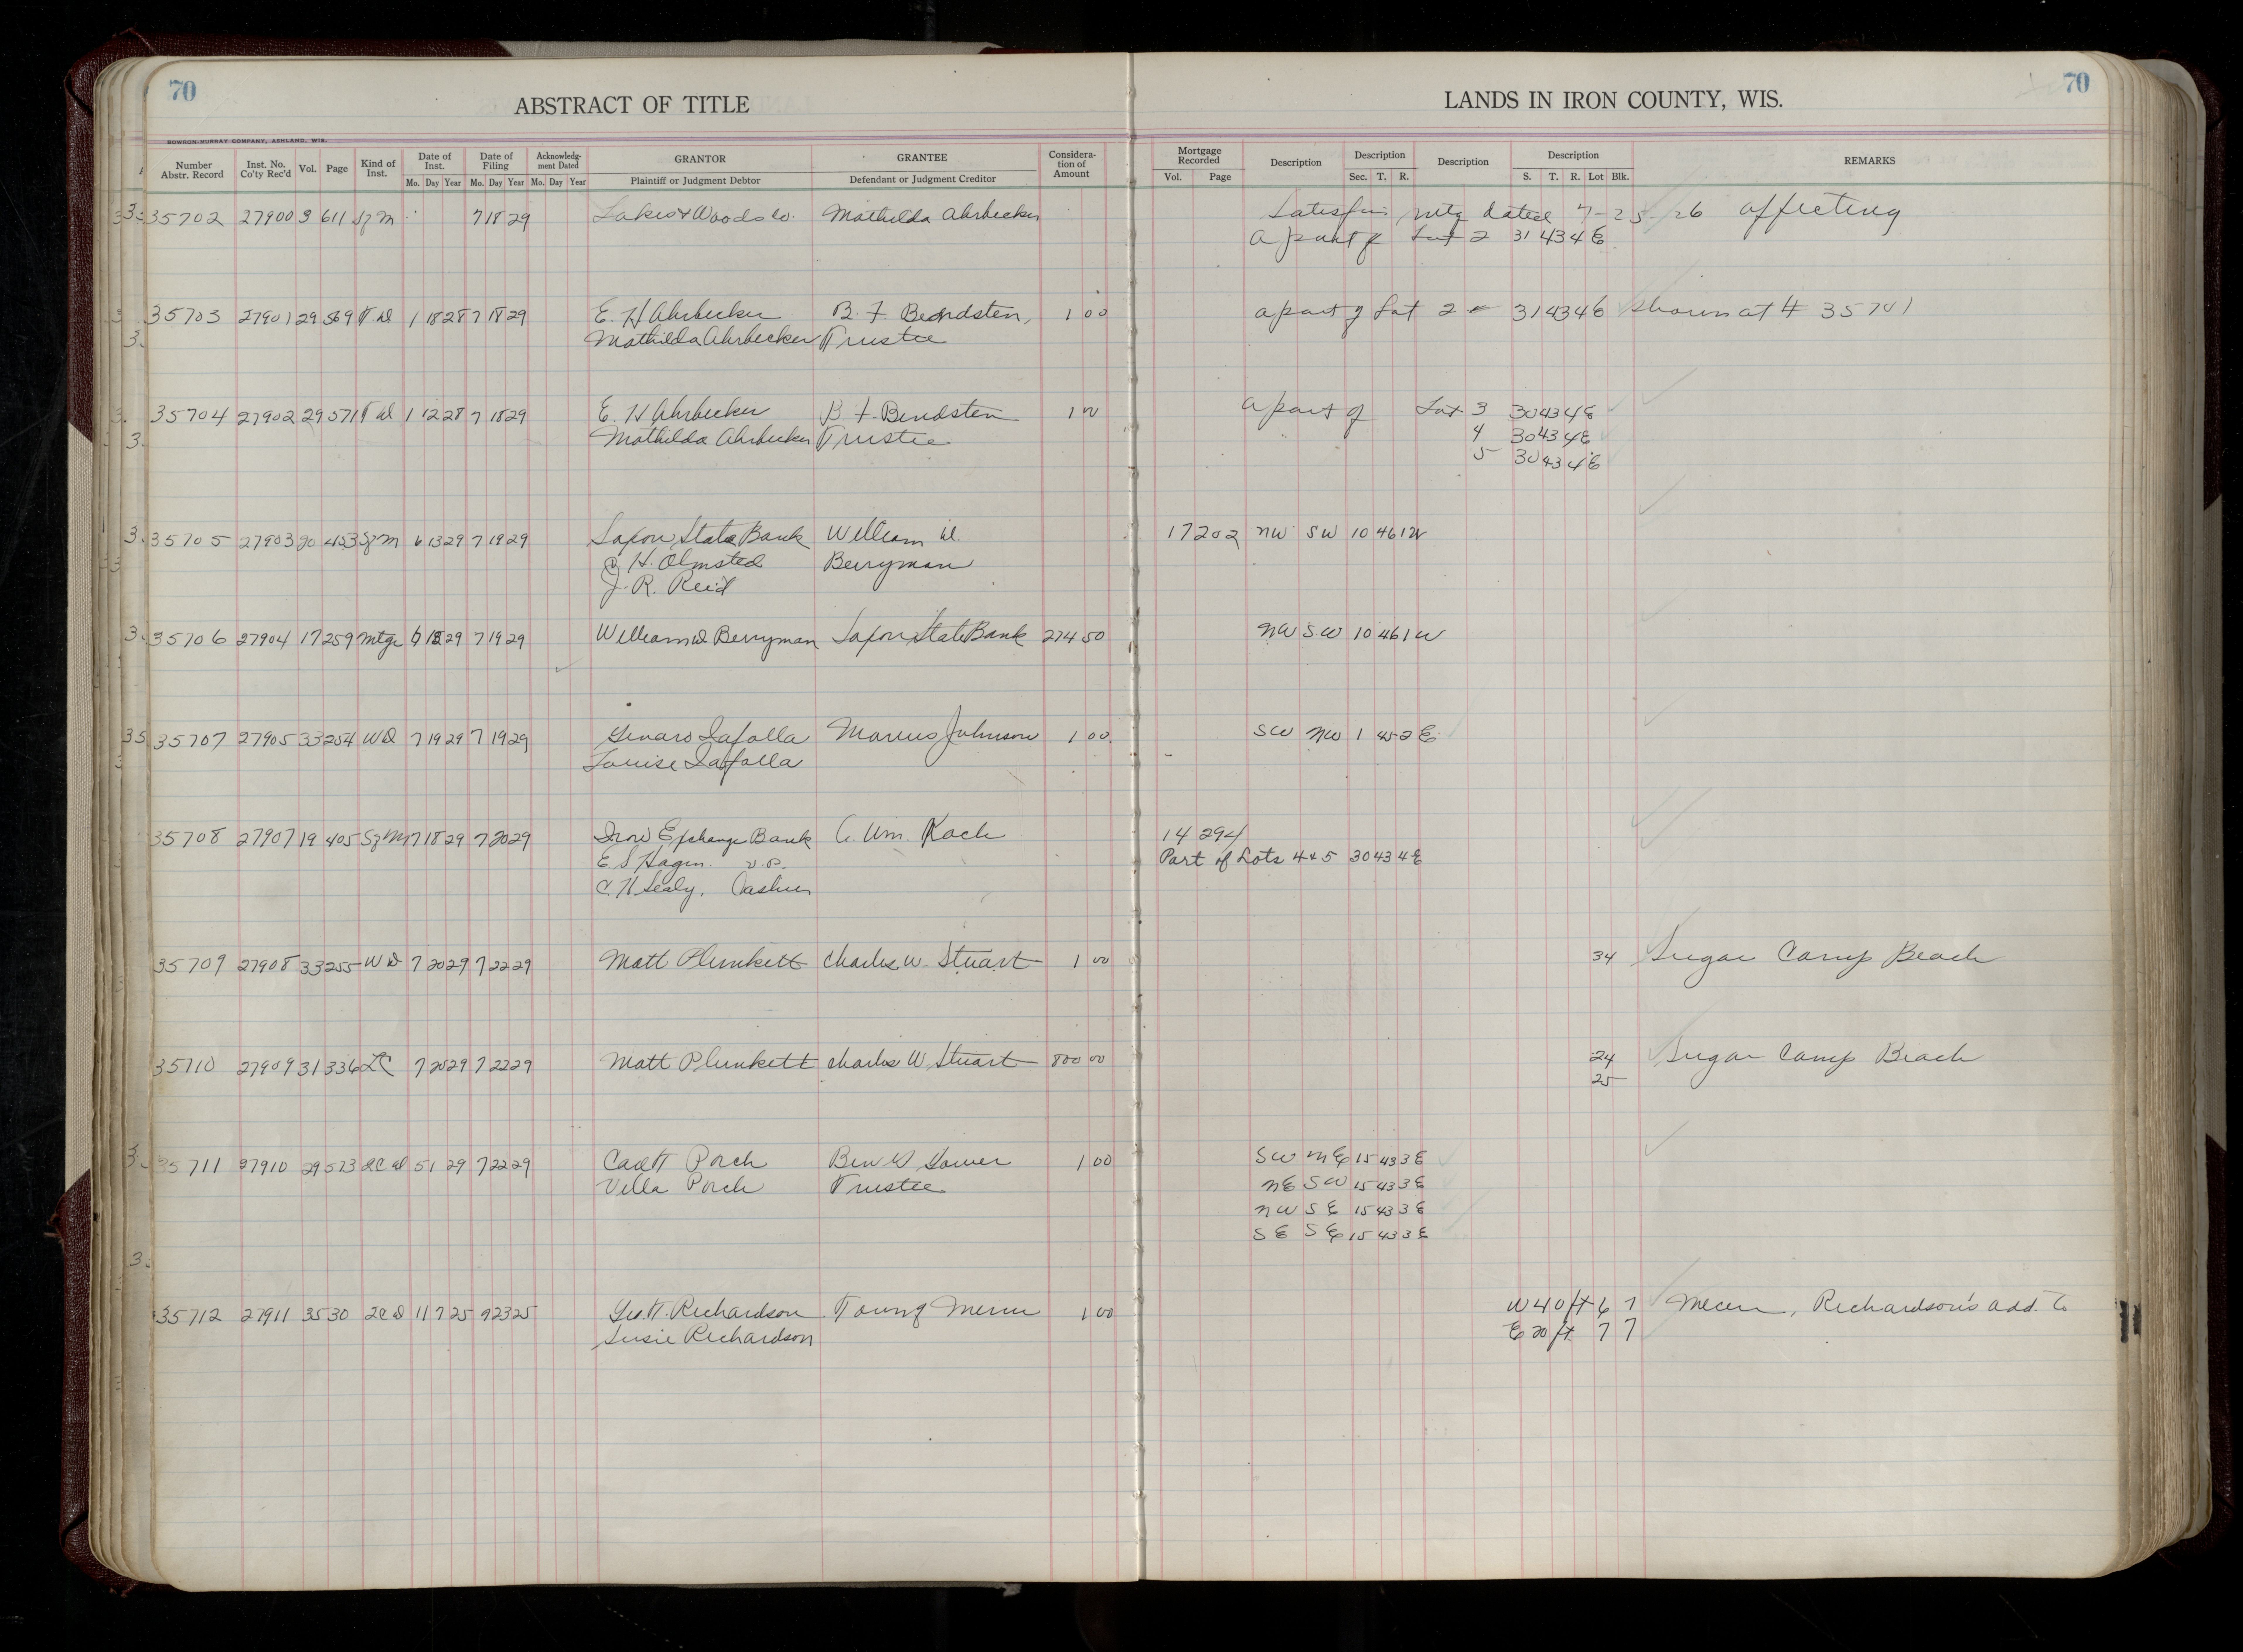 70
ABSTRACT OF TITLE
LANDS IN IRON COUNTY, WIS.
70
BOWRON-MURRAY COMPANY, ASHLAND, WIS.
Number Abstr. Record Inst. No. Co'ty Rec'd Vol. Page Kind of Inst. Date of Inst. Date of Filing Acknowledgment Dated GRANTOR GRANTEE Consideration of Amount Mortgage Recorded Description Description Description Description REMARKS
Mo. Day Year Mo. Day Year Mo. Day Year Plaintiff or Judgment Debtor Defendant or Judgment Creditor Vol. Page Sec. T. R. S. T. R. Lot Blk.
35702 27900 3 611 Sf M 7 18 29 Lakes & Woods Co. Mathilda Ahrbecker Satisfies mtg dated 7-25-26 affecting
a part of Lot 2 31 43 4 E
35703 27901 29 569 T D 1 18 28 7 18 29 E. H Ahrbecker B. F. Bendsten, 1 00 a part of Lot 2 31 43 4 E shown at # 35701
Mathilda Ahrbecker Trustee
35704 27902 29 571 T D 1 12 28 7 18 29 E. H Ahrbecker B F. Bendsten 1 00 a part of Lot 3 30 43 4 E
Mathilda Ahrbecker Trustee 4 30 43 4 E
5 30 43 4 E
35705 27903 20 453 Sf M 6 13 29 7 19 29 Saxon State Bank William D. 17 202 NW SW 10 46 1 W
H. Olmsted Berryman
J. R. Reid
35706 27904 17 259 Mtge 6 13 29 7 19 29 William D Berryman Saxon State Bank 274 50 NW SW 10 46 1 W
35707 27905 33 254 W D 7 19 29 7 19 29 Genaro Iafolla Marcus Johnson 1 00 SW NW 1 45 2 E
Louise Iafolla
35708 27907 19 405 Sf M 7 18 29 7 20 29 Iron Exchange Bank C. Wm. Koch 14 294
E. S Hagen V.P. Part of Lots 4 & 5 30 43 4 E
C. H Sealy, Cashier
35709 27908 33 255 W D 7 20 29 7 22 29 Matt Plunkett Charles W. Stuart 1 00 34 Sugar Camp Beach
35710 27909 31 336 LC 7 20 29 7 22 29 Matt Plunkett Charles W. Stuart 800 00 24 Sugar Camp Beach
25
35711 27910 29 573 2C D 5 1 29 7 22 29 Porch Ben 1 00 SW NE 15 43 3 E
Villa Porch Trustee NE SW 15 43 3 E
NW SE 15 43 3 E
SE SE 15 43 3 E
35712 27911 35 30 2C D 11 7 25 9 23 25 Geo. H. Richardson Town of Mercer 1 00 W 40 ft 6 7 Mercer, Richardson's add. to
Susie Richardson E 20 ft 7 7